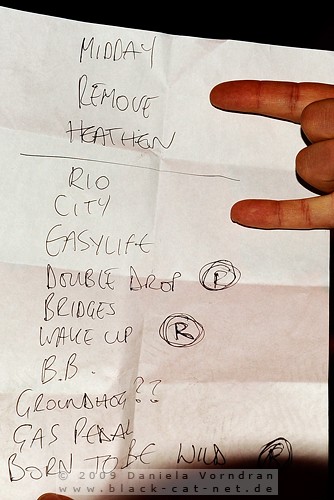 MIDDAY
REMOVE
HEATHEN
RIO
CITY
EASYLIFE
DOUBLE DROP R
BRIDGES
WAKE UP R
B.B.
GROUNDHOG??
GAS PEDAL
BORN TO BE WILD R
© 2009 Daniela Vorndran
www.black-cat-net.de